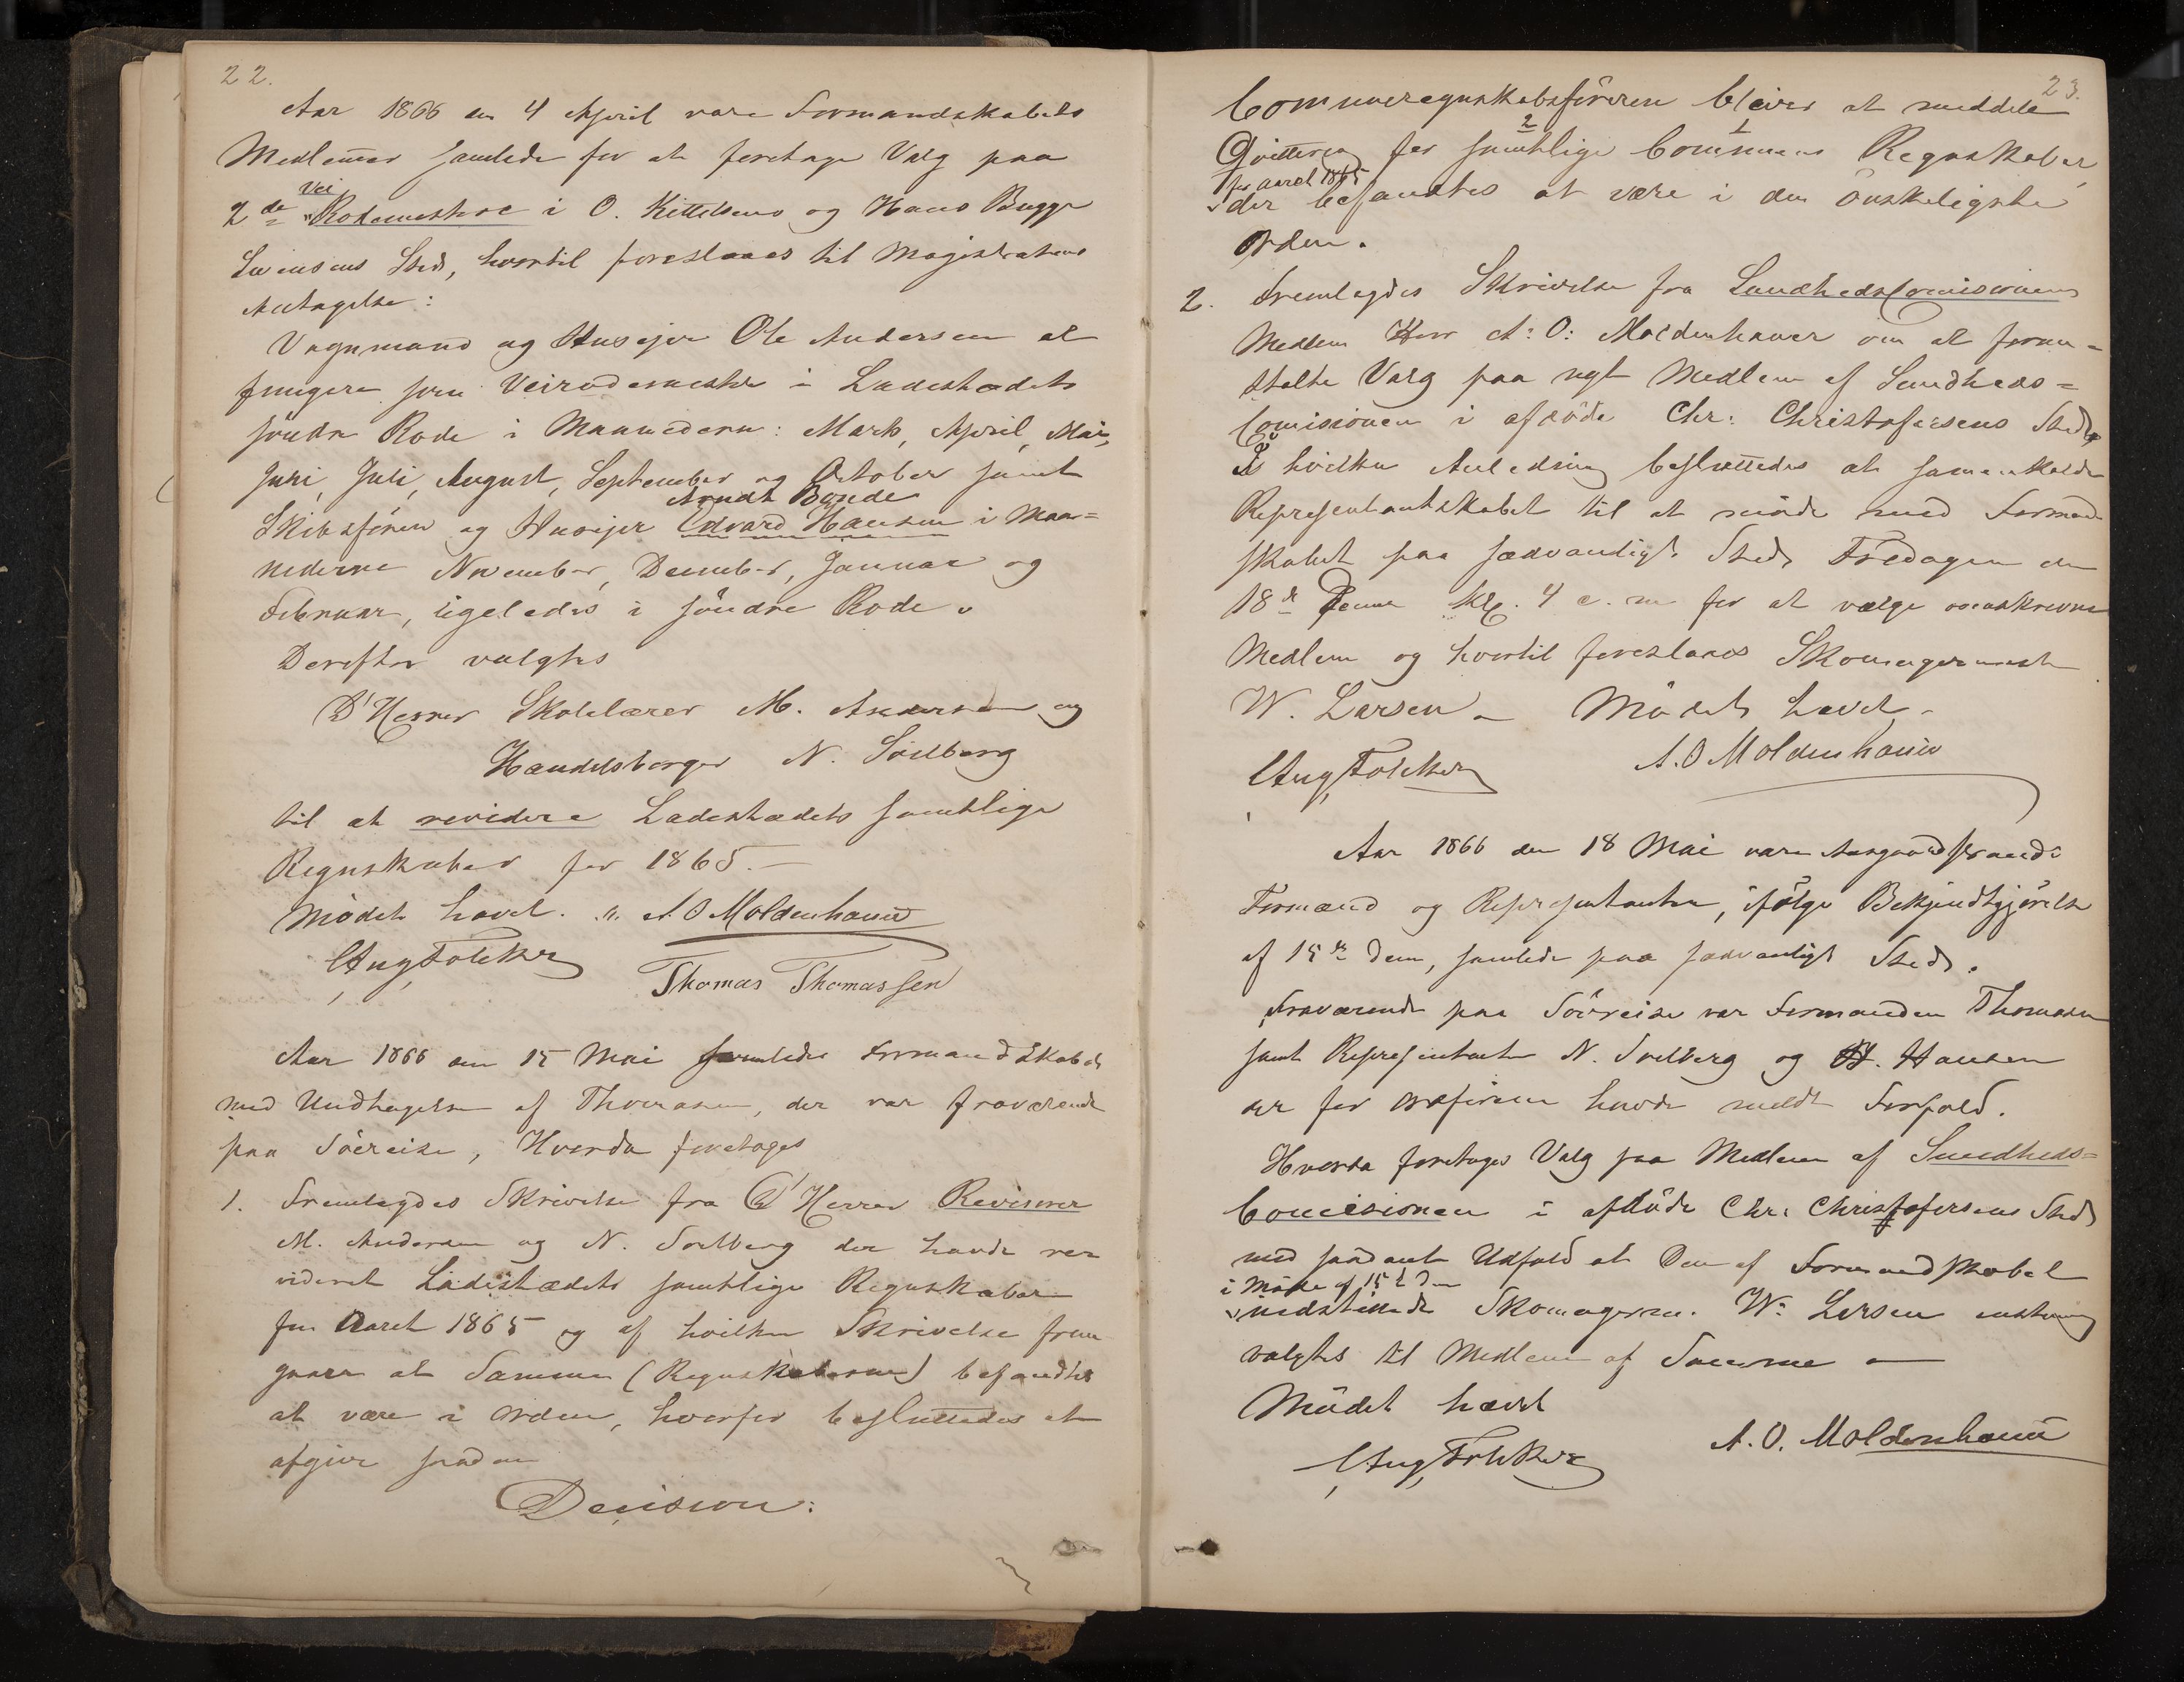 22.
Aar 1866 den 4 April vare Formandskabets
Medlemer samlede for at foretage Valg paa
2de Vei Rodemestere i O. Kittelsens og Hans Bugge
Sted, hvortil foreslaaes til Magistratens
Antagelse:
Vognmand og Huusejer Ole Andersen at
fungere som Veirodemester i Ladestædets
söndre Rode i Maanederne: Marts, April, Mai,
Juni, Juli, August, September og October samt
Arndt Bonde
Skibsförer og Huusejer Edvard Hansen i Maa=
nederne November, December, Januar og
Februar, ligeledes i söndre Rode.
Derefter valgtes
D'Herrer Skolelærer M. Andersen og
Handelsborger N. Soelberg
til at revidere Ladestædets samtlige
Regnskaber for 1865.
Mödet hævet. A. O Moldenhauer
Thomas Thomassen
Aar 1866 den 15 Mai samledes Formandskabet
med Undtagelse af Thomasen, der var fraværende
paa Söereise, Hvorda foretoges
1. Fremlagdes Skrivelse fra D'Herrer Revisorer
M. Andersen og N. Soelberg der havde re
videret Ladestædets samtlige Regnskaber
for Aaret 1865 og af hvilken Skrivelse frem
gaaer at Samme (Regnskaberne) befandtes
at være i Orden, hvorfor besluttedes at
afgive saadan
Decision:
23.
Communeregnskabsföreren bliver at meddele
Qvittering for samtlige Communens Regnskaber
for Aaret 1865
der befandtes at være i den önskeligste
Orden.
2. Fremlagdes Skrivelse fra Sundhedscomisionens
Medlem Herr A: O: Moldenhauer om at foran=
stalte Valg paa nyt Medlem af Sundheds=
Comisionen i afdöde Chr: Christofersens Sted,
I hvilken Anledning besluttedes at samenkalde
Representantskabet til at möde med Formand
skabet paa sædvanligt Sted Fredagen den
18de Denne Kl. 4 e. m for at vælge omskrevne
Medlem og hvortil foreslaaes Skomagermester
W. Larsen – Mödet hævet –
A. O Moldenhauer
Aar 1866 den 18 Mai vare Aasgaardstrands
Formænd og Representanter, ifölge Bekjendtgjörelse
af 15de dennes, samlede paa sædvanligt Sted.
Fraværende paa Söereise var Formanden Thomasen
samt Representanterne N. Soelberg og H. Hansen
der for Ordföreren havde meldt Forfald.
Hvorda foretoges Valg paa Medlem af Sundheds=
Comisionen i afdöde Chr: Christofersens Sted
med saadant Udfald at Den af Formandskabet
i Möde af 15de Dn
indstillede Skomagerm. W: Larsen enstemmig
valgtes til Medlem af Samme –
Mödet hævet
A. O. Moldenhauer